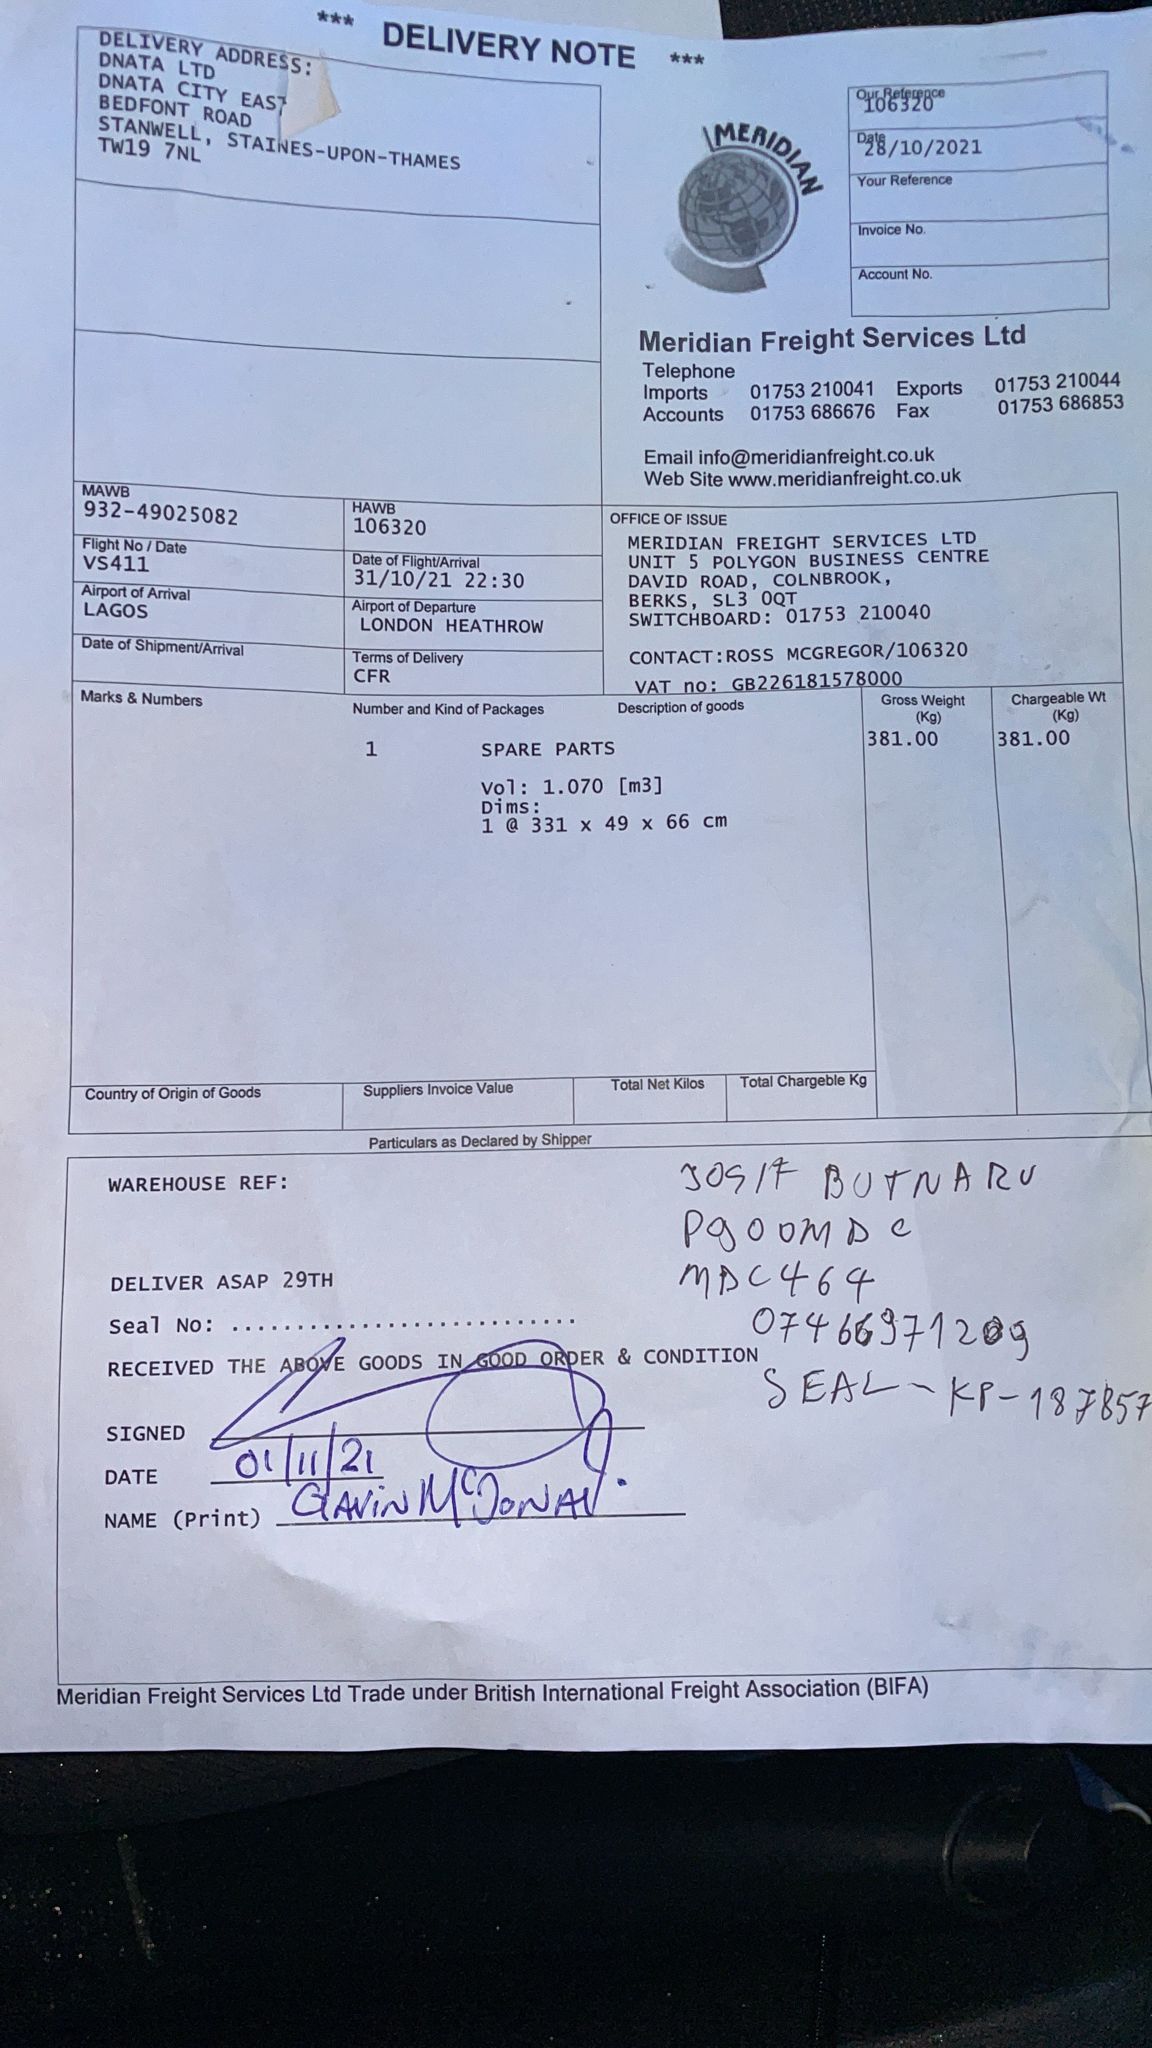 *** DELIVERY NOTE ***
DELIVERY ADDRESS:
DNATA LTD
DNATA CITY EAST
BEDFONT ROAD
STANWELL, STAINES-UPON-THAMES
TW19 7NL
MERIDIAN
Our Reference
106320
Date
28/10/2021
Your Reference
Invoice No.
Account No.
Meridian Freight Services Ltd
Telephone
Imports 01753 210041 Exports 01753 210044
Accounts 01753 686676 Fax 01753 686853
Email info@meridianfreight.co.uk
Web Site www.meridianfreight.co.uk
MAWB
932-49025082
HAWB
106320
Flight No / Date
VS411
Date of Flight/Arrival
31/10/21 22:30
Airport of Arrival
LAGOS
Airport of Departure
LONDON HEATHROW
Date of Shipment/Arrival
Terms of Delivery
CFR
OFFICE OF ISSUE
MERIDIAN FREIGHT SERVICES LTD
UNIT 5 POLYGON BUSINESS CENTRE
DAVID ROAD, COLNBROOK,
BERKS, SL3 0QT
SWITCHBOARD: 01753 210040
CONTACT:ROSS MCGREGOR/106320
VAT no: GB226181578000
Marks & Numbers
Number and Kind of Packages
Description of goods
Gross Weight (Kg)
Chargeable Wt (Kg)
1 SPARE PARTS 381.00 381.00
Vol: 1.070 [m3]
Dims:
1 @ 331 x 49 x 66 cm
Country of Origin of Goods
Suppliers Invoice Value
Total Net Kilos
Total Chargeble Kg
Particulars as Declared by Shipper
WAREHOUSE REF:
BUTNARU
MDC464
DELIVER ASAP 29TH
Seal No: ................................
RECEIVED THE ABOVE GOODS IN GOOD ORDER & CONDITION
SEAL - KP-187857
SIGNED
DATE 01/11/21
NAME (Print) GAVIN
Meridian Freight Services Ltd Trade under British International Freight Association (BIFA)